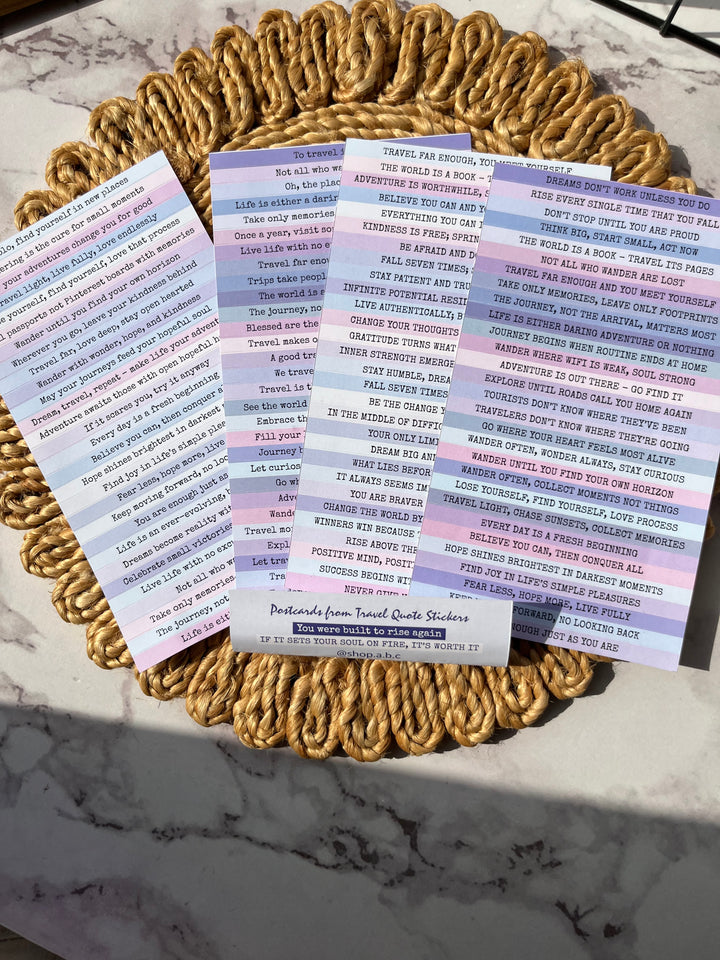 lo, find yourself in new places
ering is the cure for small moments
your adventures change you for good
Travel light, live fully, love endlessly
e yourself, find yourself, love that process
l passports not Pinterest boards with memories
Wander until you find your own horizon
Wherever you go, leave your kindness behind
Travel far, love deep, stay open hearted
Wander with wonder, hope, and kindness
May your journeys feed your hopeful soul
Dream, travel, repeat – make life your advent
Adventure awaits those with open hopeful h
If it scares you, try it anyway
Every day is a fresh beginning
Believe you can, then conquer a
Hope shines brightest in darkest
Find joy in life's simple pleas
Fear less, hope more, live
Keep moving forward, no loo
You are enough just as
Life is an ever-evolving,
Dreams become reality wit
Celebrate small victories
Live life with no exc
Not all who wa
Take only memories,
The journey, not
Life is eith
To travel i
Not all who wa
Oh, the plac
Life is either a darin
Take only memories
Once a year, visit so
Live life with no e
Travel far enoug
Trips take people
The world is a
The journey, no
Blessed are the
Travel makes o
A good tra
We trave
Travel is t
See the world
Embrace the
Fill your
Journey b
Let curios
Go wh
Adve
Wande
Travel mo
Expl
Let trav
Trav
TRAVEL FAR ENOUGH, YOU MEET YOURSELF
THE WORLD IS A BOOK –
ADVENTURE IS WORTHWHILE,
BELIEVE YOU CAN AND Y
EVERYTHING YOU CAN
KINDNESS IS FREE; SPRIN
BE AFRAID AND DO
FALL SEVEN TIMES,
STAY PATIENT AND TRU
INFINITE POTENTIAL RESI
LIVE AUTHENTICALLY, B
CHANGE YOUR THOUGHTS
GRATITUDE TURNS WHAT
INNER STRENGTH EMERGE
STAY HUMBLE, DREA
FALL SEVEN TIMES
BE THE CHANGE Y
IN THE MIDDLE OF DIFFIC
YOUR ONLY LIM
DREAM BIG AN
WHAT LIES BEFOR
IT ALWAYS SEEMS IM
YOU ARE BRAVER
CHANGE THE WORLD BY
WINNERS WIN BECAUSE
RISE ABOVE THE
POSITIVE MIND, POSIT
SUCCESS BEGINS WI
NEVER GIVE
DREAMS DON'T WORK UNLESS YOU DO
RISE EVERY SINGLE TIME THAT YOU FALL
DON'T STOP UNTIL YOU ARE PROUD
THINK BIG, START SMALL, ACT NOW
THE WORLD IS A BOOK – TRAVEL ITS PAGES
NOT ALL WHO WANDER ARE LOST
TRAVEL FAR ENOUGH AND YOU MEET YOURSELF
TAKE ONLY MEMORIES, LEAVE ONLY FOOTPRINTS
THE JOURNEY, NOT THE ARRIVAL, MATTERS MOST
LIFE IS EITHER DARING ADVENTURE OR NOTHING
JOURNEY BEGINS WHEN ROUTINE ENDS AT HOME
WANDER WHERE WIFI IS WEAK, SOUL STRONG
ADVENTURE IS OUT THERE – GO FIND IT
EXPLORE UNTIL ROADS CALL YOU HOME AGAIN
TOURISTS DON'T KNOW WHERE THEY'VE BEEN
TRAVELERS DON'T KNOW WHERE THEY'RE GOING
GO WHERE YOUR HEART FEELS MOST ALIVE
WANDER OFTEN, WONDER ALWAYS, STAY CURIOUS
WANDER UNTIL YOU FIND YOUR OWN HORIZON
WANDER OFTEN, COLLECT MOMENTS NOT THINGS
LOSE YOURSELF, FIND YOURSELF, LOVE PROCESS
TRAVEL LIGHT, CHASE SUNSETS, COLLECT MEMORIES
EVERY DAY IS A FRESH BEGINNING
BELIEVE YOU CAN, THEN CONQUER ALL
HOPE SHINES BRIGHTEST IN DARKEST MOMENTS
FIND JOY IN LIFE'S SIMPLE PLEASURES
FEAR LESS, HOPE MORE, LIVE FULLY
FORWARD, NO LOOKING BACK
ENOUGH JUST AS YOU ARE
Postcards from Travel Quote Stickers
You were built to rise again
IF IT SETS YOUR SOUL ON FIRE, IT'S WORTH IT
@shop.a.b.c